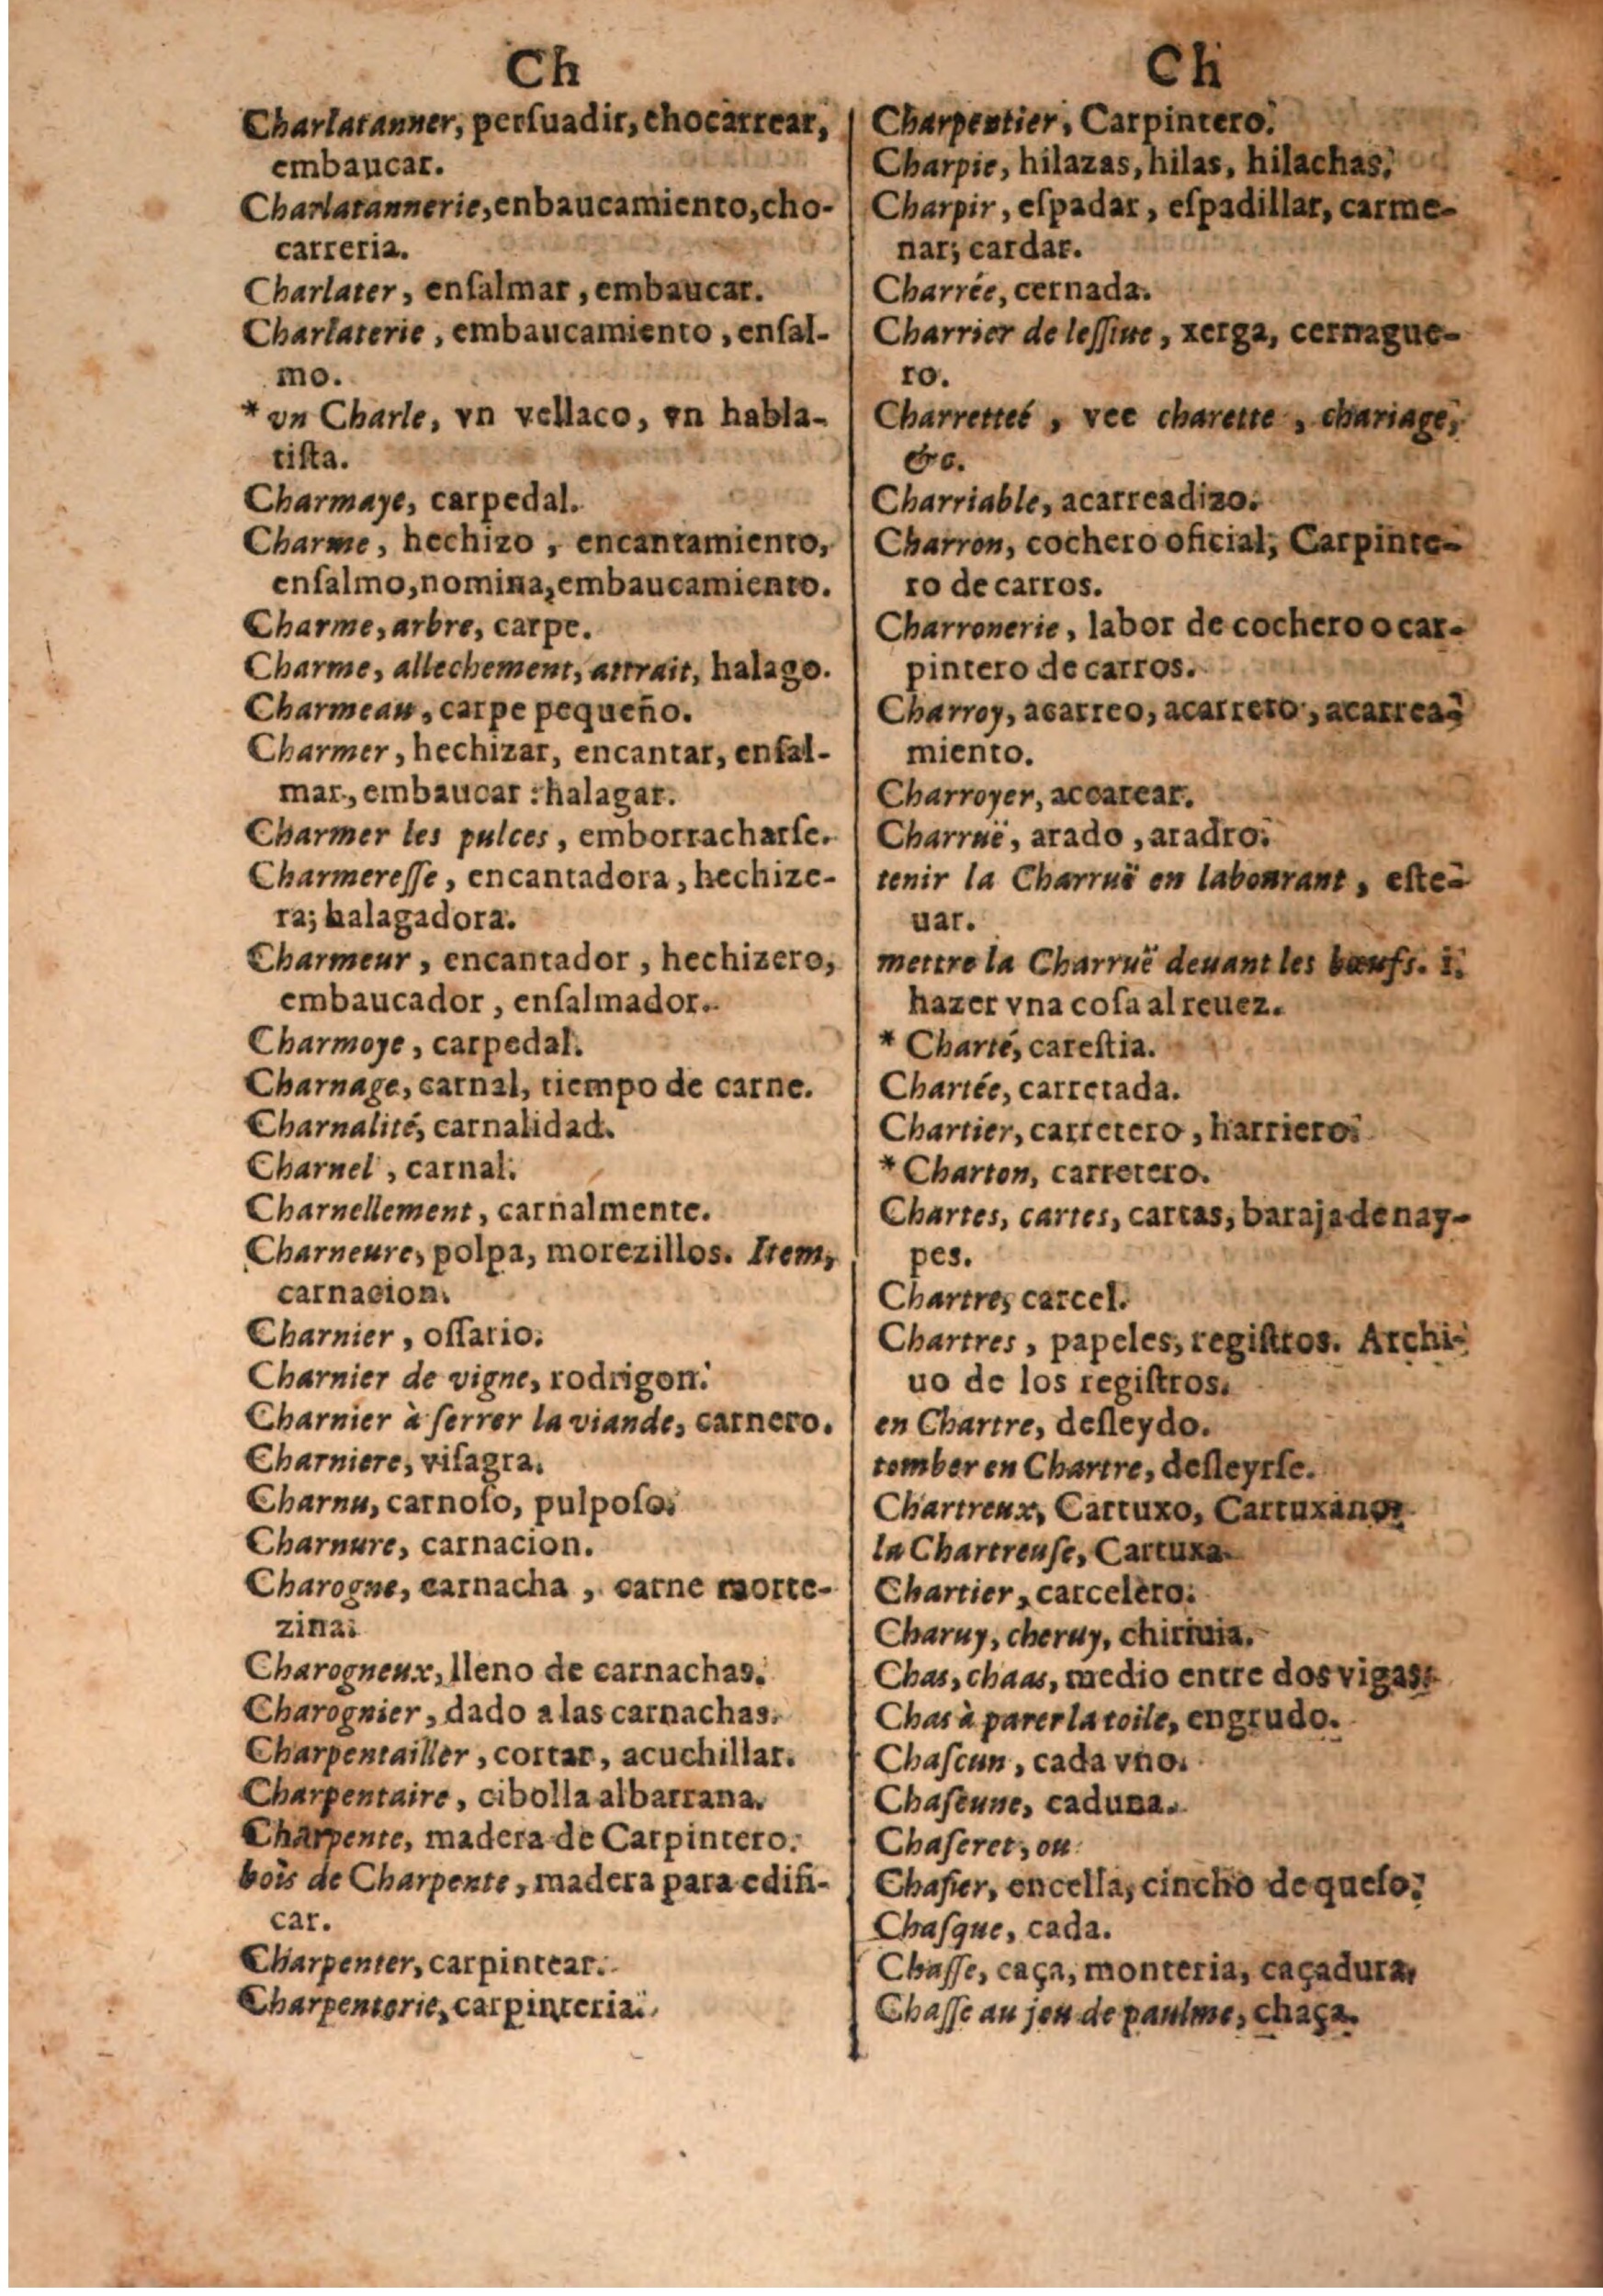 Ch
Charlatanner, perſuadir, chocarrear,
embaucar.
Charlatannerie, enbaucamiento, cho-
carreria.
Charlater, enſalmar, embaucar.
Charlaterie, embaucamiento, enſal-
mo.
* vn Charle, vn vellaco, vn habla-
tiſta.
Charmaye, carpedal.
Charme, hechizo, encantamiento,
enſalmo, nomina, embaucamiento.
Charme, arbre, carpe.
Charme, allechement, attrait, halago.
Charmeau, carpe pequeño.
Charmer, hechizar, encantar, enſal-
mar, embaucar: halagar.
Charmer les pulces, emborracharſe.
Charmereſſe, encantadora, hechize-
ra; halagadora.
Charmeur, encantador, hechizero,
embaucador, enſalmador.
Charmoye, carpedal.
Charnage, carnal, tiempo de carne.
Charnalité, carnalidad.
Charnel, carnal.
Charnellement, carnalmente.
Charneure, polpa, morezillos. Item,
carnacion.
Charnier, oſſario.
Charnier de vigne, rodrigon.
Charnier à ſerrer la viande, carnero.
Charniere, viſagra.
Charnu, carnoſo, pulpoſo.
Charnure, carnacion.
Charogne, carnacha, carne morte-
zina.
Charogneux, lleno de carnachas.
Charognier, dado a las carnachas.
Charpentailler, cortar, acuchillar.
Charpentaire, cibolla albarrana.
Charpente, madera de Carpintero.
bois de Charpente, madera para edifi-
car.
Charpenter, carpintear.
Charpenterie, carpinteria.
Ch
Charpentier, Carpintero.
Charpie, hilazas, hilas, hilachas.
Charpir, eſpadar, eſpadillar, carme-
nar; cardar.
Charrée, cernada.
Charrier de leſſiue, xerga, cernague-
ro.
Charretteé, vee charette, chariage,
&c.
Charriable, acarreadizo.
Charron, cochero oficial, Carpinte-
ro de carros.
Charronerie, labor de cochero o car-
pintero de carros.
Charroy, acarreo, acarreto, acarrea-
miento.
Charroyer, accarear.
Charruë, arado, aradro.
tenir la Charruë en labourant, eſte-
uar.
mettre la Charruë deuant les bœufs. i.
hazer vna coſa al reuez.
* Charté, careſtia.
Chartée, carretada.
Chartier, carretero, harriero.
* Charton, carretero.
Chartes, cartes, cartas, baraja de nay-
pes.
Chartre, carcel.
Chartres, papeles, regiſtros. Archi-
uo de los regiſtros.
en Chartre, deſleydo.
tomber en Chartre, deſleyrſe.
Chartreux, Cartuxo, Cartuxano.
la Chartreuſe, Cartuxa.
Chartier, carcelero.
Charuy, cheruy, chiriuia.
Chas, chaas, medio entre dos vigas.
Chas à parer la toile, engrudo.
Chaſcun, cada vno.
Chaſcune, caduna.
Chaſeret, ou
Chaſier, encella, cincho de queſo.
Chaſque, cada.
Chaſſe, caça, monteria, caçadura.
Chaſſe au jeu de paulme, chaça.